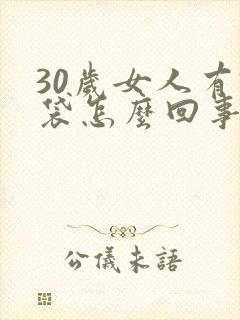 30歲女人有
袋怎麼回事
公儀未語